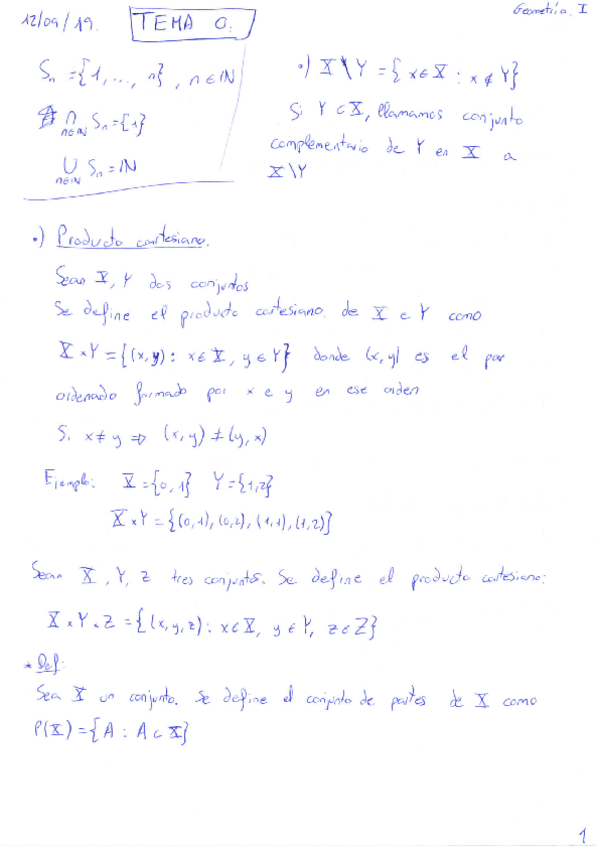 12/09/19. TEMA 0. Geometría I
Sₙ = {1, ..., n}, n ∈ ℕ
⋂ Sₙ = {1}
n∈ℕ
⋃ Sₙ = ℕ
n∈ℕ
•) X \ Y = { x ∈ X : x ∉ Y}
Si Y ⊂ X, llamamos conjunto
complementario de Y en X a
X \ Y
•) Producto cartesiano.
Sean X, Y dos conjuntos
Se define el producto cartesiano. de X e Y como
X × Y = {(x, y) : x ∈ X, y ∈ Y} donde (x, y) es el par
ordenado formado por x e y en ese orden
Si x ≠ y ⇒ (x, y) ≠ (y, x)
Ejemplo: X = {0, 1} Y = {1, 2}
X × Y = {(0, 1), (0, 2), (1, 1), (1, 2)}
Sean X, Y, Z tres conjuntos. Se define el producto cartesiano:
X × Y × Z = {(x, y, z) : x ∈ X, y ∈ Y, z ∈ Z}
* Def:
Sea X un conjunto. Se define el conjunto de partes de X como
P(X) = {A : A ⊂ X}
1